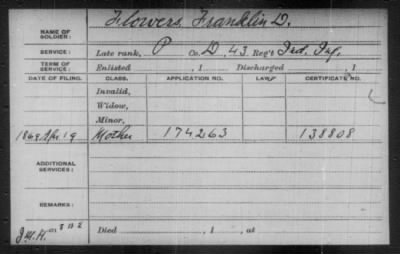 Flowers, Franklin D.
NAME OF SOLDIER:
SERVICE: Late rank, P Co. D, 43 Reg't Ind. Inf.
TERM OF SERVICE: Enlisted , 1 Discharged , 1
DATE OF FILING. CLASS. APPLICATION NO. LAW CERTIFICATE NO.
Invalid,
Widow,
Minor,
1869 Apr. 19 Mother 174263 138808
ADDITIONAL SERVICES:
REMARKS:
Died , 1 , at